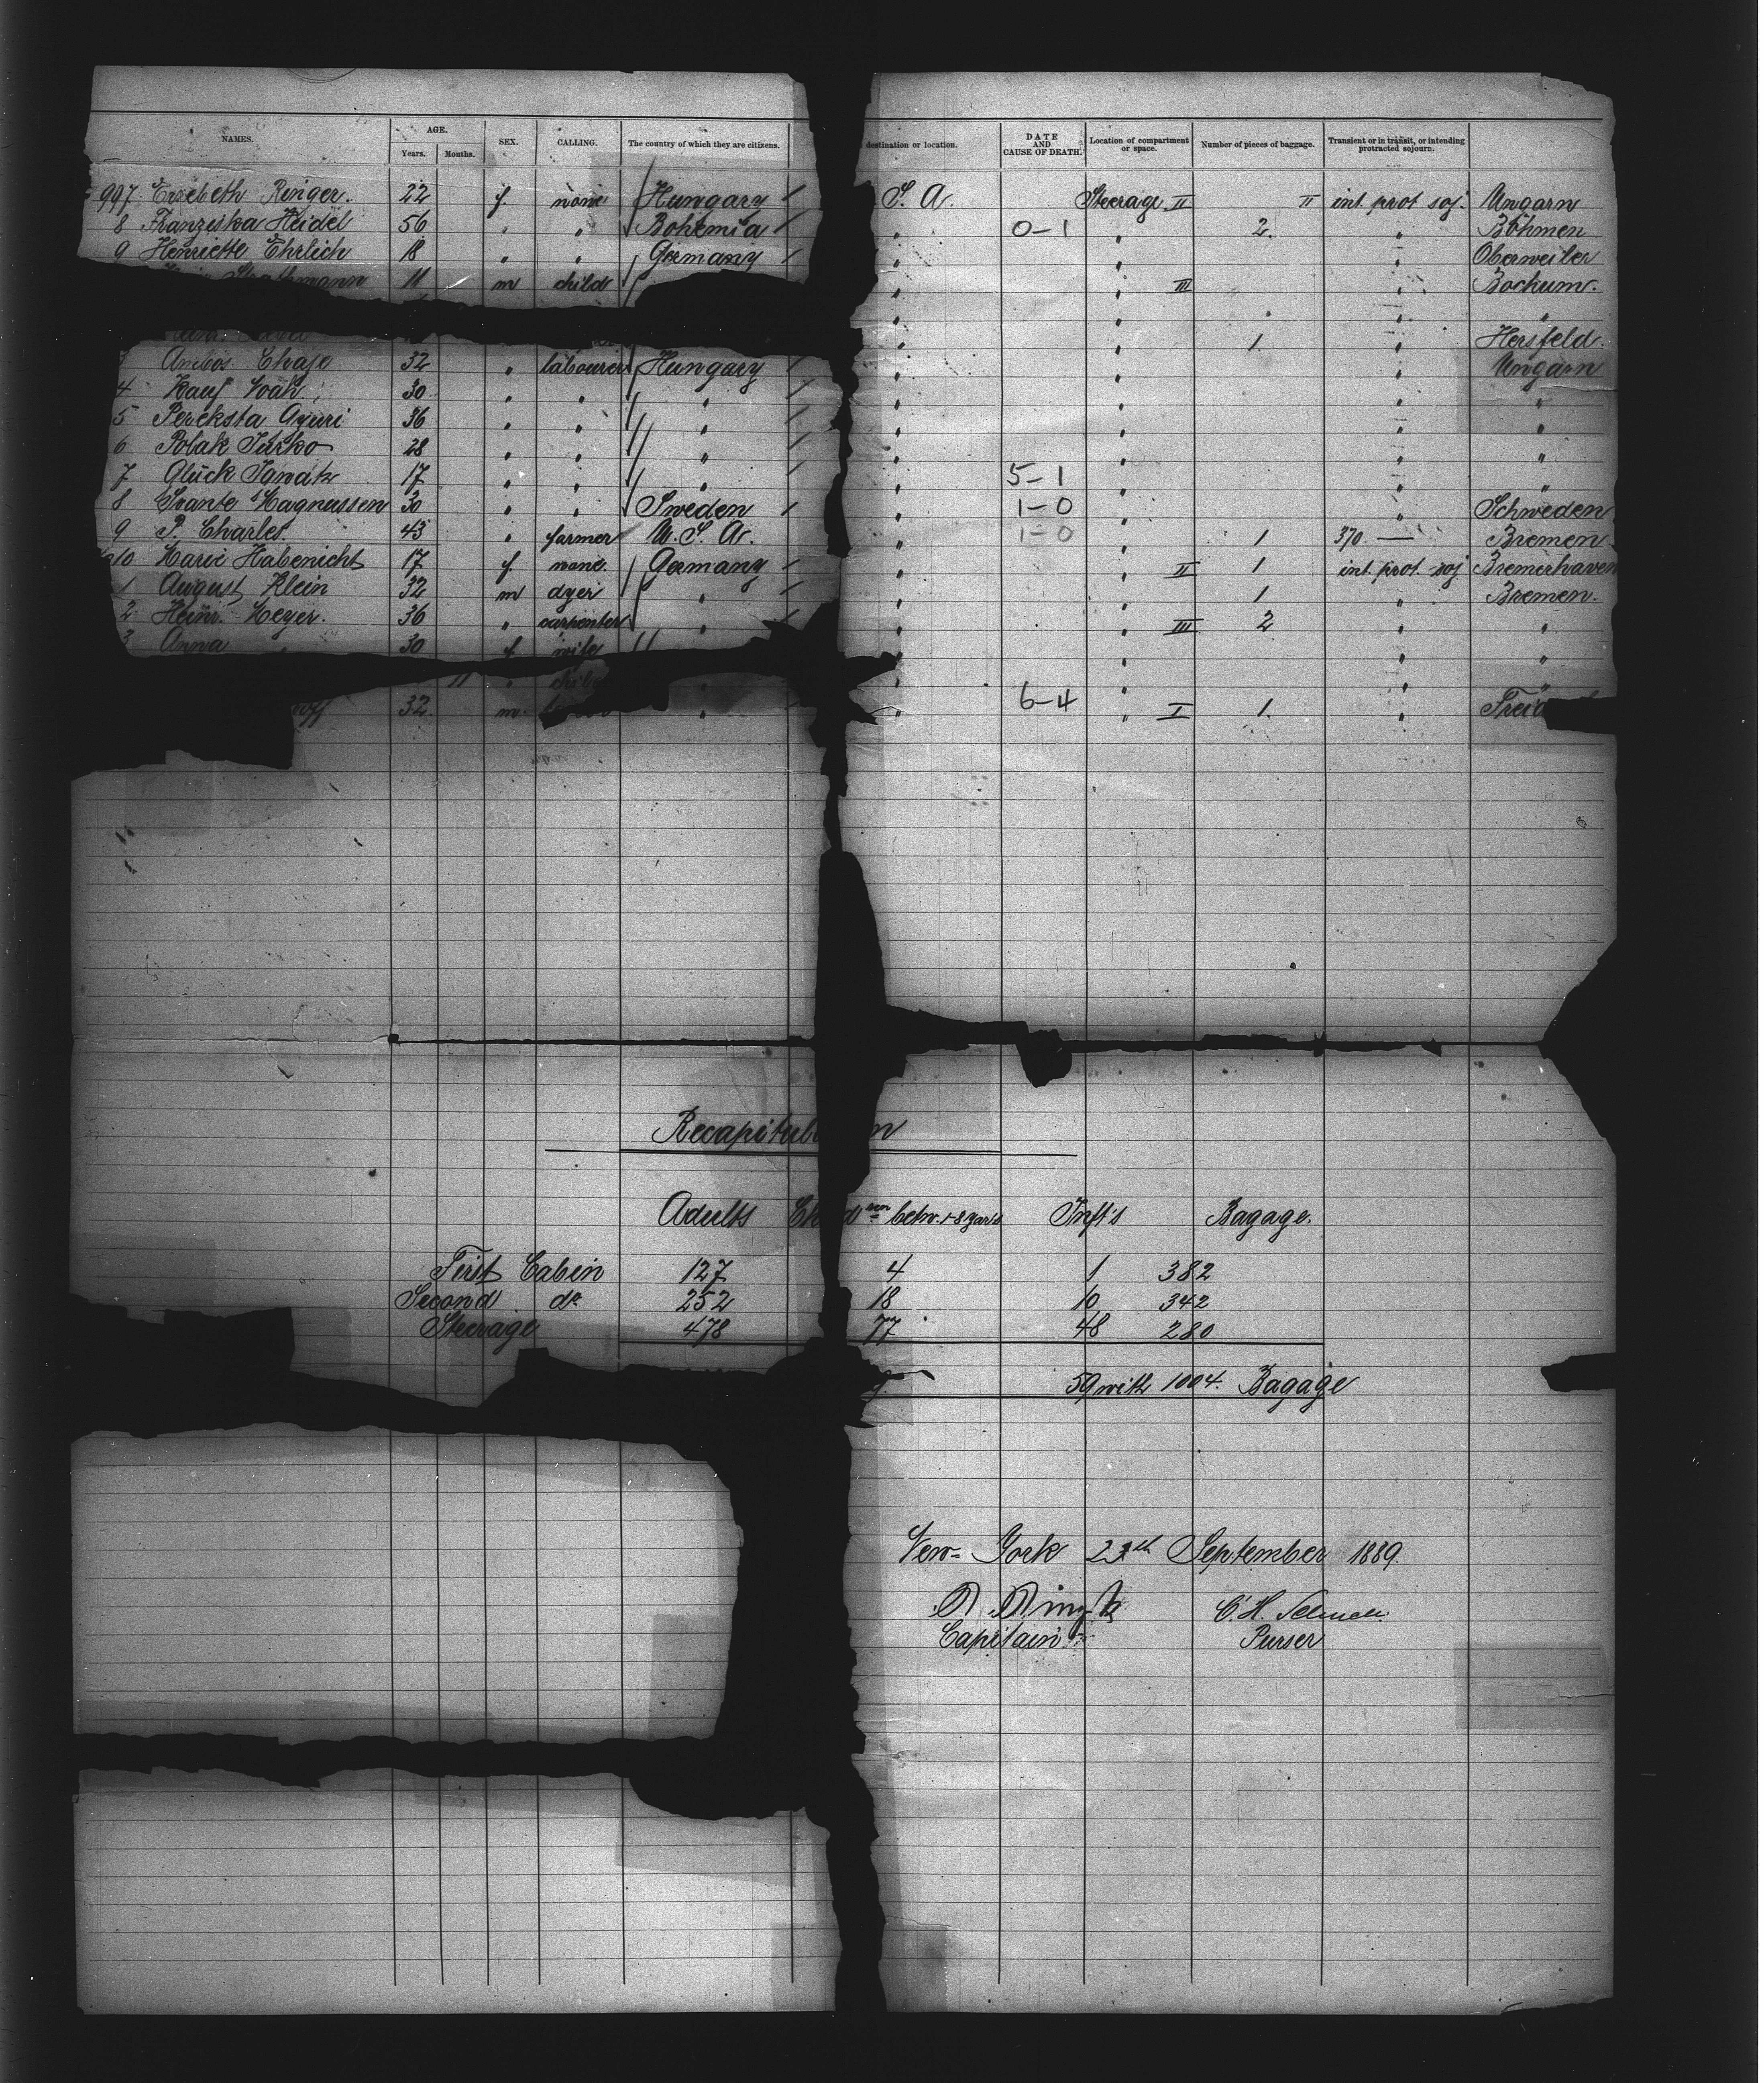 NAMES. AGE. Years. Months. SEX. CALLING. The country of which they are citizens. destination or location. DATE AND CAUSE OF DEATH. Location of compartment or space. Number of pieces of baggage. Transient or in transit, or intending protracted sojourn.
997 Erzebeth Ringer. 22 f. none Hungary S. A. Steerage II II int. prot soj. Ungarn
8 Franziska Heidel 56 " " Bohemia " 0-1 " 2. " Böhmen
9 Henriette Ehrlich 18 " " Germany " " " Oberweiler
11 m child " " III " Bochum.
" " " "
" " 1. " Hersfeld.
Chaje 32 " labourer Hungary " " " Ungarn
4 30 " " " " " " "
5 Pereksta Gyuri 36 " " " " " " "
6 Polak Jurko 28 " " " " " " "
7 Glück Ignatz 17 " " " " 5-1 " " "
8 Svante Magnussen 30 " " Sweden " 1-0 " " Schweden
9 P. Charlet. 43 " farmer U. S. A. " 1-0 " 1 370 — Bremen
10 Marie Habenicht 17 f. none. Germany " " II 1 int. prot. soj Bremerhaven
1 August Klein 32 m dyer " " " 1 " Bremen.
2 Heinr. Meyer. 36 " carpenter " " " III 2 " "
3 Anna " 30 f. wife " " " "
11 " child " " " " "
32. m. " " 6-4 " I 1. "
Recapitul n
Adults Ch d ren betw. 1-8 years Inft's Bagage.
First Cabin 127 4 1 382
Second do 252 18 10 342
Steerage 478 77 48 280
59 with 1004. Bagage
New-York 23th September 1889.
Capitain Purser